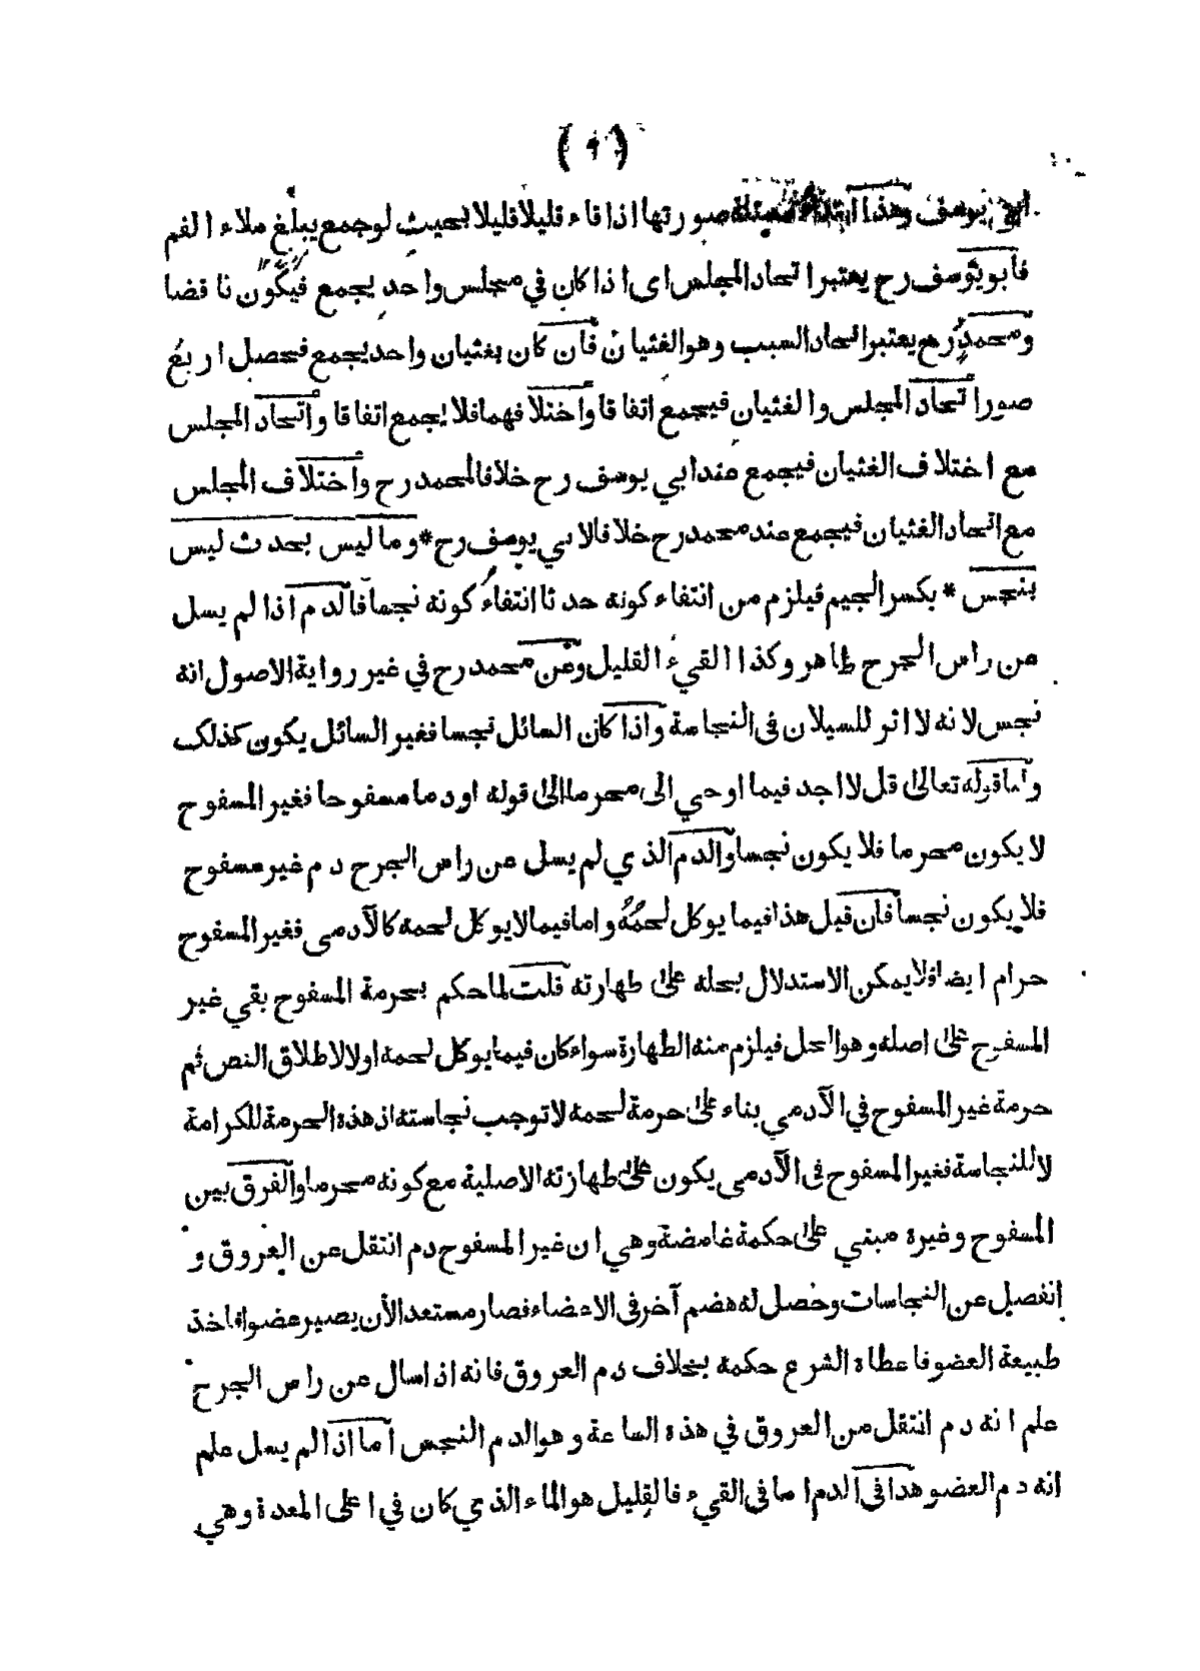 ابي يوسف وهذا ابتداء مسئلة صورتها اذا قاء قليلا قليلا بحيث لو جمع يبلغ ملاء الفم
فابو يوسف رح يعتبر اتحاد المجلس اى اذا كان في مجلس واحد يجمع فيكون ناقضا
ومحمد رح يعتبر اتحاد السبب وهو الغثيان فان كان بغثيان واحد يجمع فحصل اربع
صور اتحاد المجلس والغثيان فيجمع اتفاقا واختلافهما فلا يجمع اتفاقا واتحاد المجلس
مع اختلاف الغثيان فيجمع عند ابي يوسف رح خلافا لمحمد رح واختلاف المجلس
مع اتحاد الغثيان فيجمع عند محمد رح خلافا لابي يوسف رح * وما ليس بحدث ليس
بنجس * بكسر الجيم فيلزم من انتفاء كونه حدثا انتفاء كونه نجسا فالدم اذا لم يسل
من راس الجرح طاهر وكذا القيء القليل وعن محمد رح في غير رواية الاصول انه
نجس لانه لا اثر للسيلان فى النجاسة واذا كان السائل نجسا فغير السائل يكون كذلك
ولنا قوله تعالى قل لا اجد فيما اوحي الى محرما الى قوله او دما مسفوحا فغير المسفوح
لا يكون محرما فلا يكون نجسا والدم الذي لم يسل عن راس الجرح دم غير مسفوح
فلا يكون نجسا فان قيل هذا فيما يوكل لحمه واما فيما لا يوكل لحمه كالآدمى فغير المسفوح
حرام ايضا فلا يمكن الاستدلال بحله على طهارته قلت لما حكم بحرمة المسفوح بقي غير
المسفوح على اصله وهو الحل فيلزم منه الطهارة سواء كان فيما يوكل لحمه او لا لاطلاق النص ثم
حرمة غير المسفوح في الآدمي بناء على حرمة لحمه لا توجب نجاسته اذ هذه الحرمة للكرامة
لا للنجاسة فغير المسفوح فى الآدمى يكون على طهارته الاصلية مع كونه محرما والفرق بين
المسفوح وغيره مبني على حكمة غامضة وهي ان غير المسفوح دم انتقل عن العروق و
انفصل عن النجاسات وحصل له هضم آخر فى الاعضاء فصار مستعدا لأن يصير عضوا فاخذ
طبيعة العضو فاعطاه الشرع حكمه بخلاف دم العروق فانه اذا سال عن راس الجرح
علم انه دم انتقل من العروق في هذه الساعة وهو الدم النجس اما اذا لم يسل علم
انه دم العضو هذا فى الدم اما فى القيء فالقليل هو الماء الذي كان في اعلى المعدة وهي